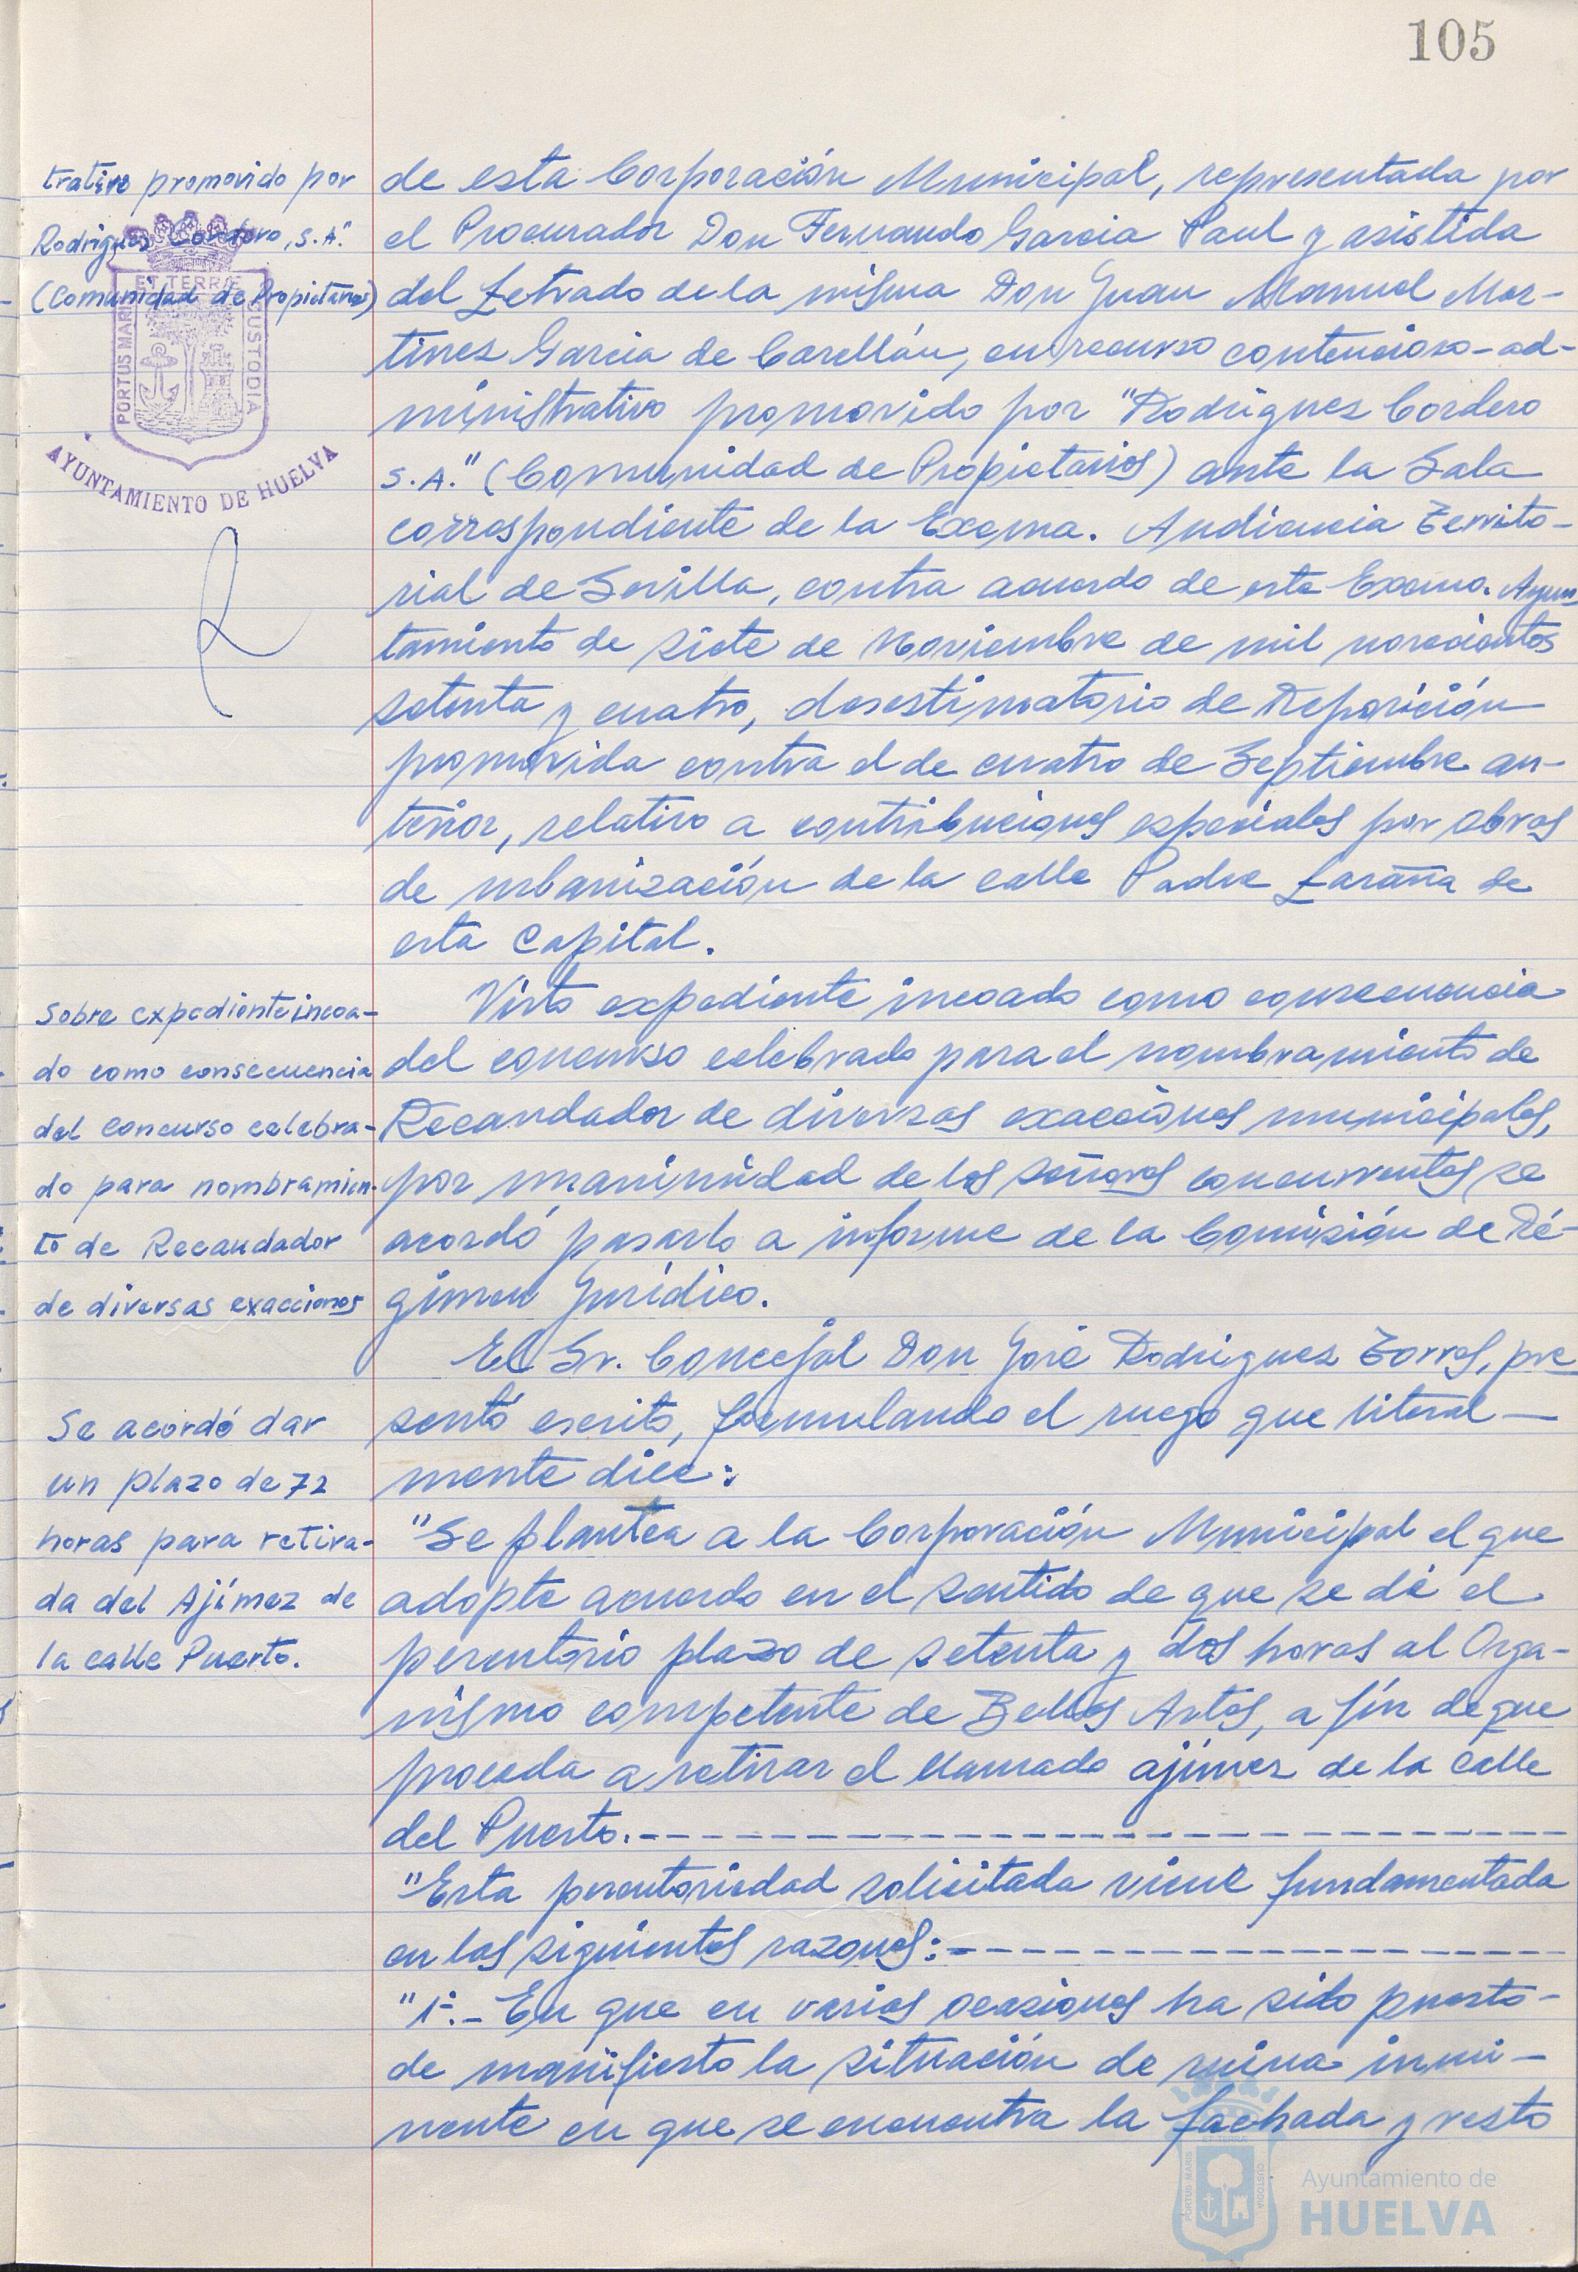 105
trativo promovido por
Rodriguez Cordero, S.A."
(Comunidad de Propietarios)
ET TERRÆ
PORTUS MARIS
CUSTODIA
AYUNTAMIENTO DE HUELVA
de esta Corporación Municipal, representada por
el Procurador Don Fernando Garcia Paul y asistida
del Letrado de la misma Don Juan Manuel Mar-
tinez Garcia de Carellán, en recurso contencioso-ad-
ministrativo promovido por "Rodriguez Cordero
S.A." (Comunidad de Propietarios) ante la Sala
correspondiente de la Excma. Audiencia Territo-
rial de Sevilla, contra acuerdo de este Excmo. Ayun-
tamiento de siete de Noviembre de mil novecientos
setenta y cuatro, desestimatorio de Reposición
promovida contra el de cuatro de Septiembre an-
terior, relativo a contribuciones especiales por obras
de urbanización de la calle Padre Laraña de
esta Capital.
Sobre expediente incoa-
do como consecuencia
del concurso celebra-
do para nombramien-
to de Recaudador
de diversas exacciones
Visto expediente incoado como consecuencia
del concurso celebrado para el nombramiento de
Recaudador de diversas exacciones municipales,
por unanimidad de los señores concurrentes, se
acordó pasarlo a informe de la Comisión de Ré-
gimen Jurídico.
Se acordó dar
un plazo de 72
horas para retira-
da del Ajímez de
la calle Puerto.
El Sr. Concejal Don José Rodriguez Torres, pre
sentó escrito, formulando el ruego que literal-
mente dice:
"Se plantea a la Corporación Municipal el que
adopte acuerdo en el sentido de que se dé el
perentorio plazo de setenta y dos horas al Orga-
nismo competente de Bellas Artes, a fín de que
proceda a retirar el llamado ajímez de la calle
del Puerto.-----------------
"Esta perentoriedad solicitada viene fundamentada
en las siguientes razones:-----------------
"1º.- En que en varias ocasiones ha sido puesto-
de manifiesto la situación de ruina inmi-
nente en que se encuentra la fachada y resto
ET TERRÆ
PORTUS MARIS
CUSTODIA
Ayuntamiento de
HUELVA